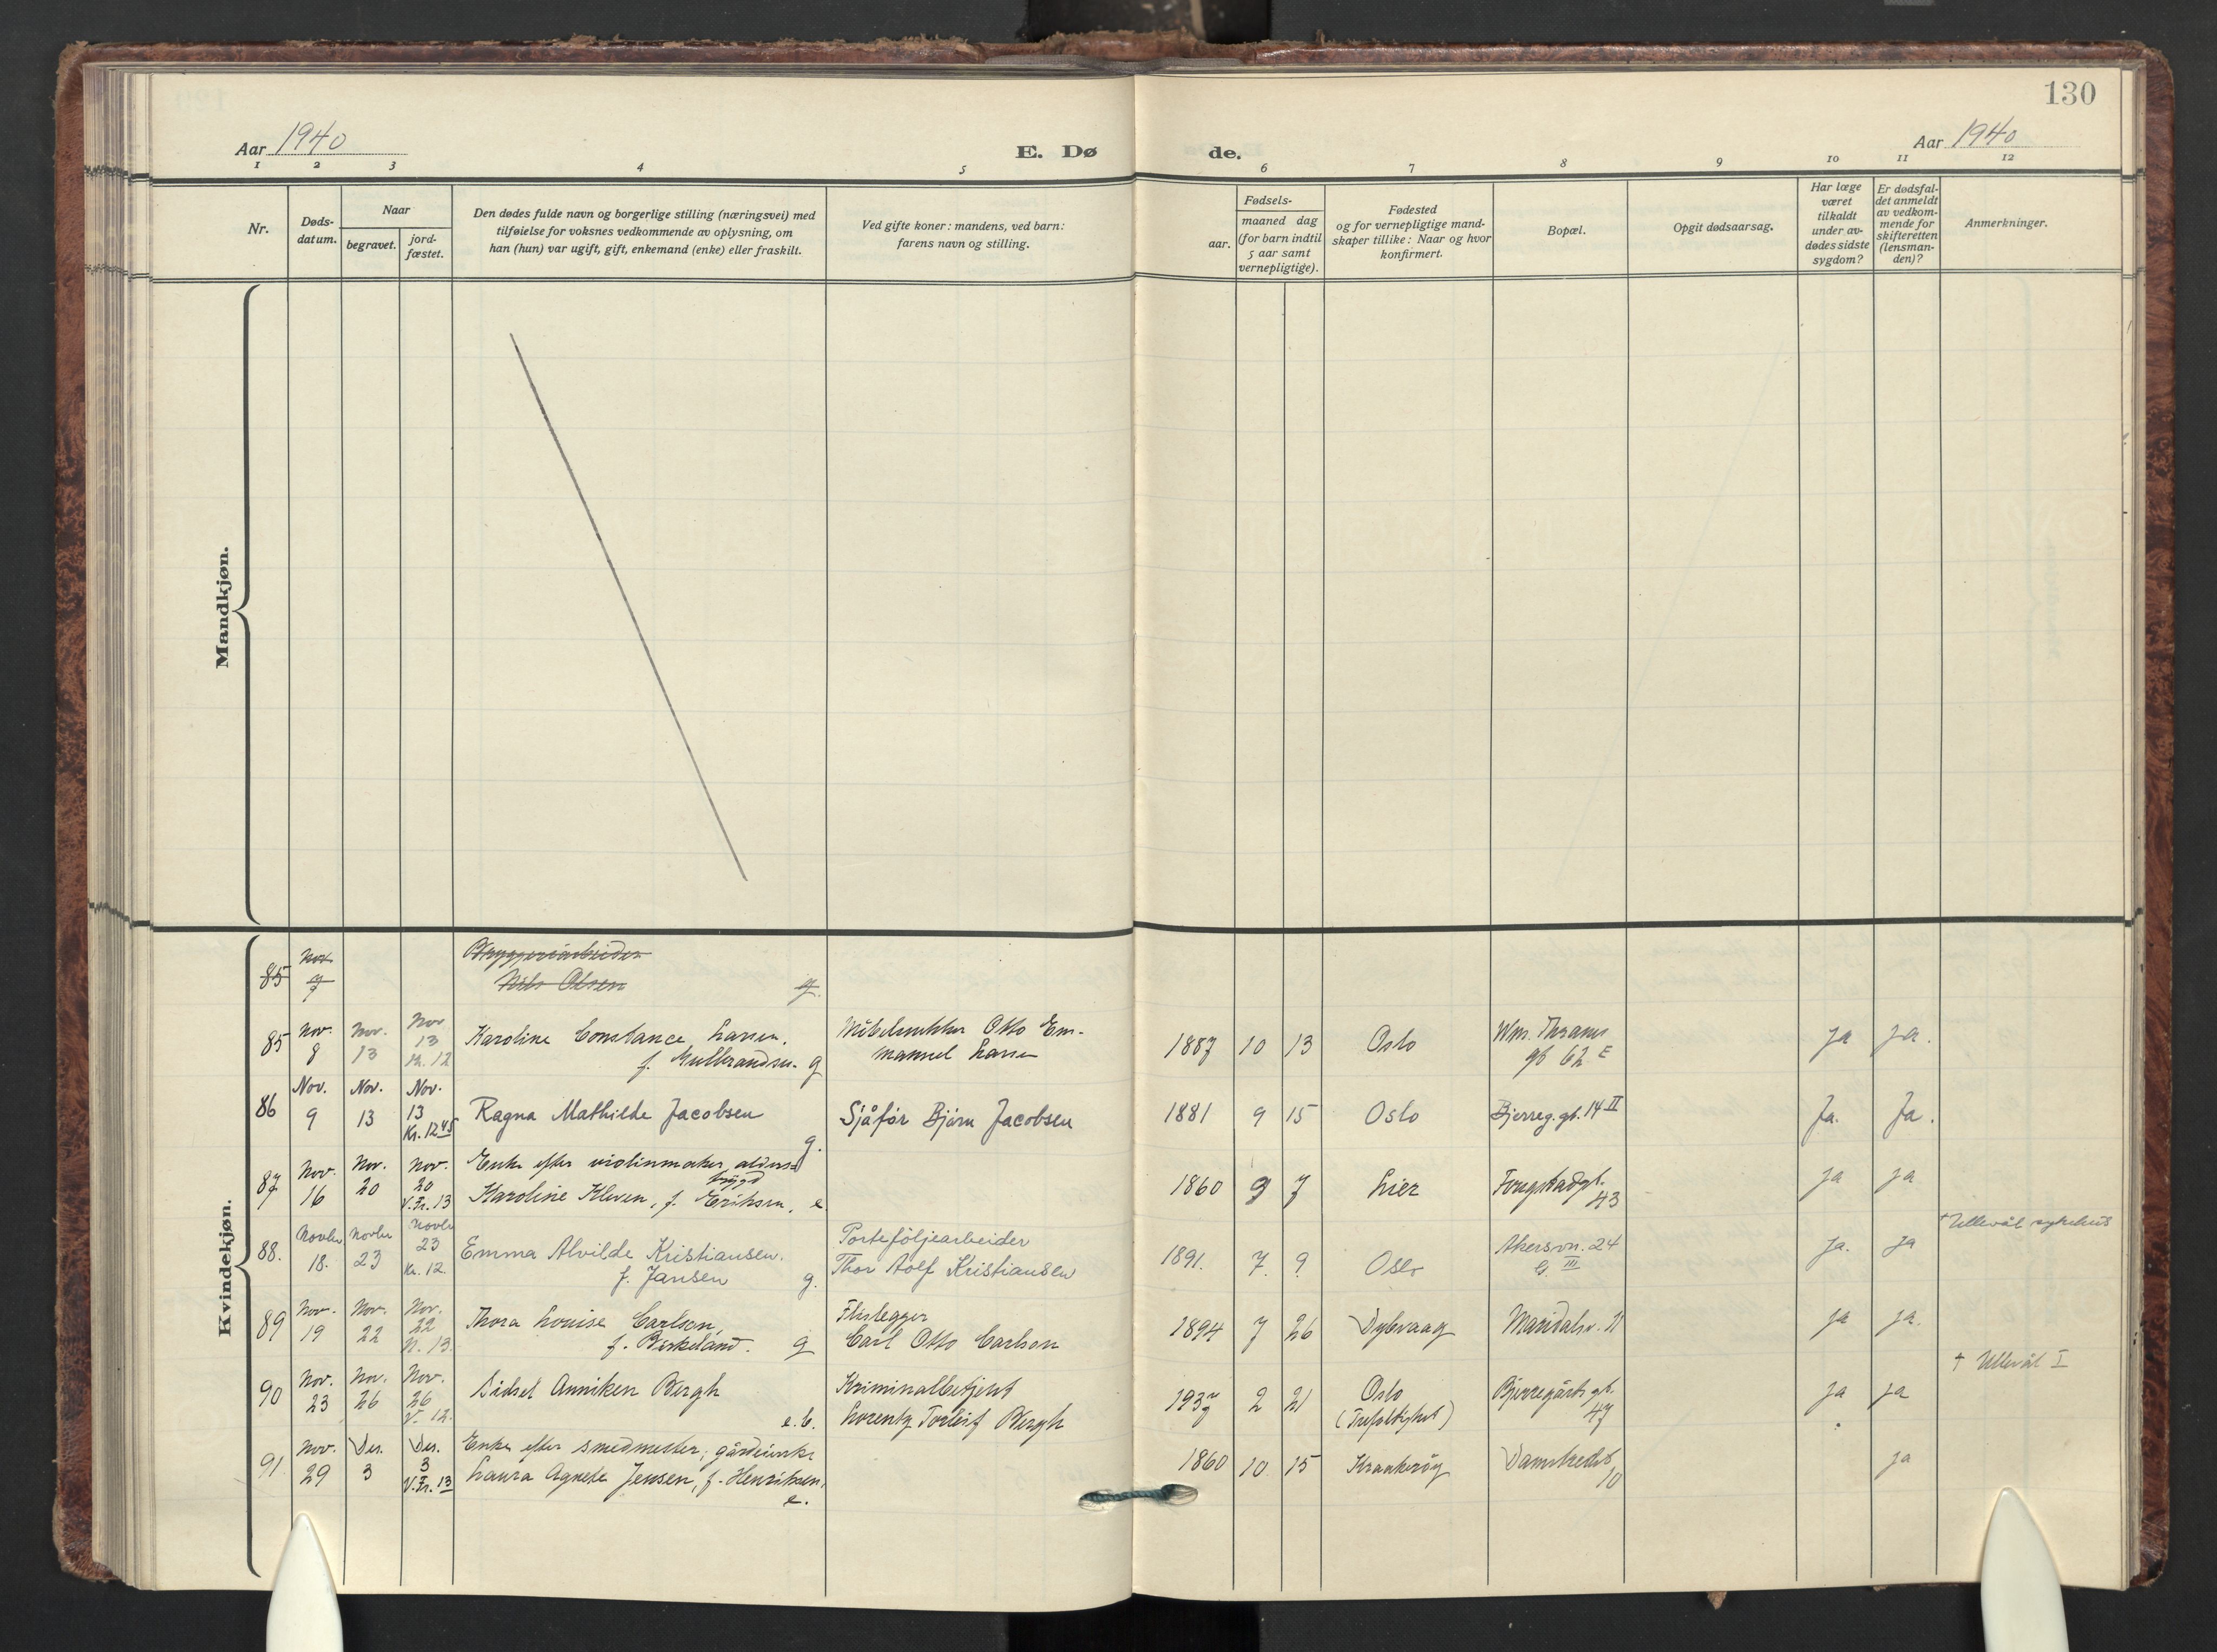 130
Aar 1940
E. Dø
de.
Aar 1940
1 2 3 4 5 6 7 8 9 10 11 12
Nr.
Døds-
datum.
Naar
begravet.
jord-
fæstet.
Den dødes fulde navn og borgerlige stilling (næringsvei) med
tilføielse for voksnes vedkommende av oplysning, om
han (hun) var ugift, gift, enkemand (enke) eller fraskilt.
Ved gifte koner: mandens, ved barn:
farens navn og stilling.
Fødsels-
aar.
maaned dag
(for barn indtil
5 aar samt
vernepligtige).
Fødested
og for vernepligtige mand-
skaper tillike: Naar og hvor
konfirmert.
Bopæl.
Opgit dødsaarsag.
Har læge
været
tilkaldt
under av-
dødes sidste
sygdom?
Er dødsfal-
det anmeldt
av vedkom-
mende for
skifteretten
(lensman-
den)?
Anmerkninger.
Mandkjøn.
Kvindekjøn.
85 Nov. 7 Bryggeriarbeider
Nils Olsen g.
85 Nov. 8 Nov. 13 Nov 13 Kr. 12
Karoline Constance Larsen,
f. Gulbrandsen. g
Møbelsnekker Otto Em-
manuel Larsen
1887 10 13 Oslo
Wm. Thranes
gt 62 E
ja ja.
86 Nov. 9 Nov. 13 Nov. 13 Kr. 12 45
Ragna Mathilde Jacobsen
g.
Sjåfør Bjørn Jacobsen
1881 9 15 Oslo Bjerreg. gt. 14 II Ja. Ja.
87 Nov. 16 Nov. 20 Nov. 20 V.Fr. 13
Enke efter violinmaker, alders-
trygd
Karoline Kleven, f. Eriksen, e
1860 9 7 Lier
Fougstadgt.
43
ja ja
88. Novbr 18. Novbr 23 Novbr 23 Kr. 12.
Emma Alvilde Kristiansen.
f. Jansen g.
Porteføljearbeider
Thor Adolf Kristiansen
1891. 7. 9 Oslo
Akersvn. 24
G. III
ja. ja
† Ullevål sykehus
89 Nov. 19 Nov. 22 Nov. 22 N. 13.
Thora Louise Carlson,
f. Birkeland. g
Flislegger
Carl Otto Carlson
1894 7 26 Dybvaag Maridalsv. 11 ja ja.
90 Nov. 23 Nov. 26 Nov. 26 V. 12.
Sidsel Anniken Bergh
e.b.
Kriminalbetjent
Lorentz Torleif Bergh
1937 2 21
Oslo
(Trefoldighet)
Bjerregårdsgt.
47
ja ja
† Ullevål I
91 Nov. 29 Des. 3 Des. 3 V.Fr. 13
Enke efter smedmester, gårdeierske
Laura Agnete Jensen, f. Henriksen,
e.
1860 10 15 Kraakerøy
Damstredet
10
ja